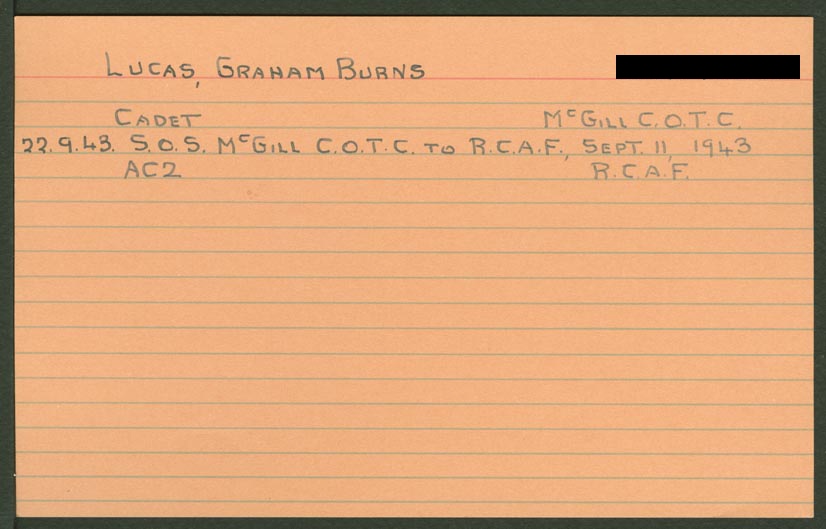 LUCAS, GRAHAM BURNS
CADET McGILL C.O.T.C.
22.9.43. S.O.S. McGILL C.O.T.C. TO R.C.A.F., SEPT. 11, 1943
AC2 R.C.A.F.